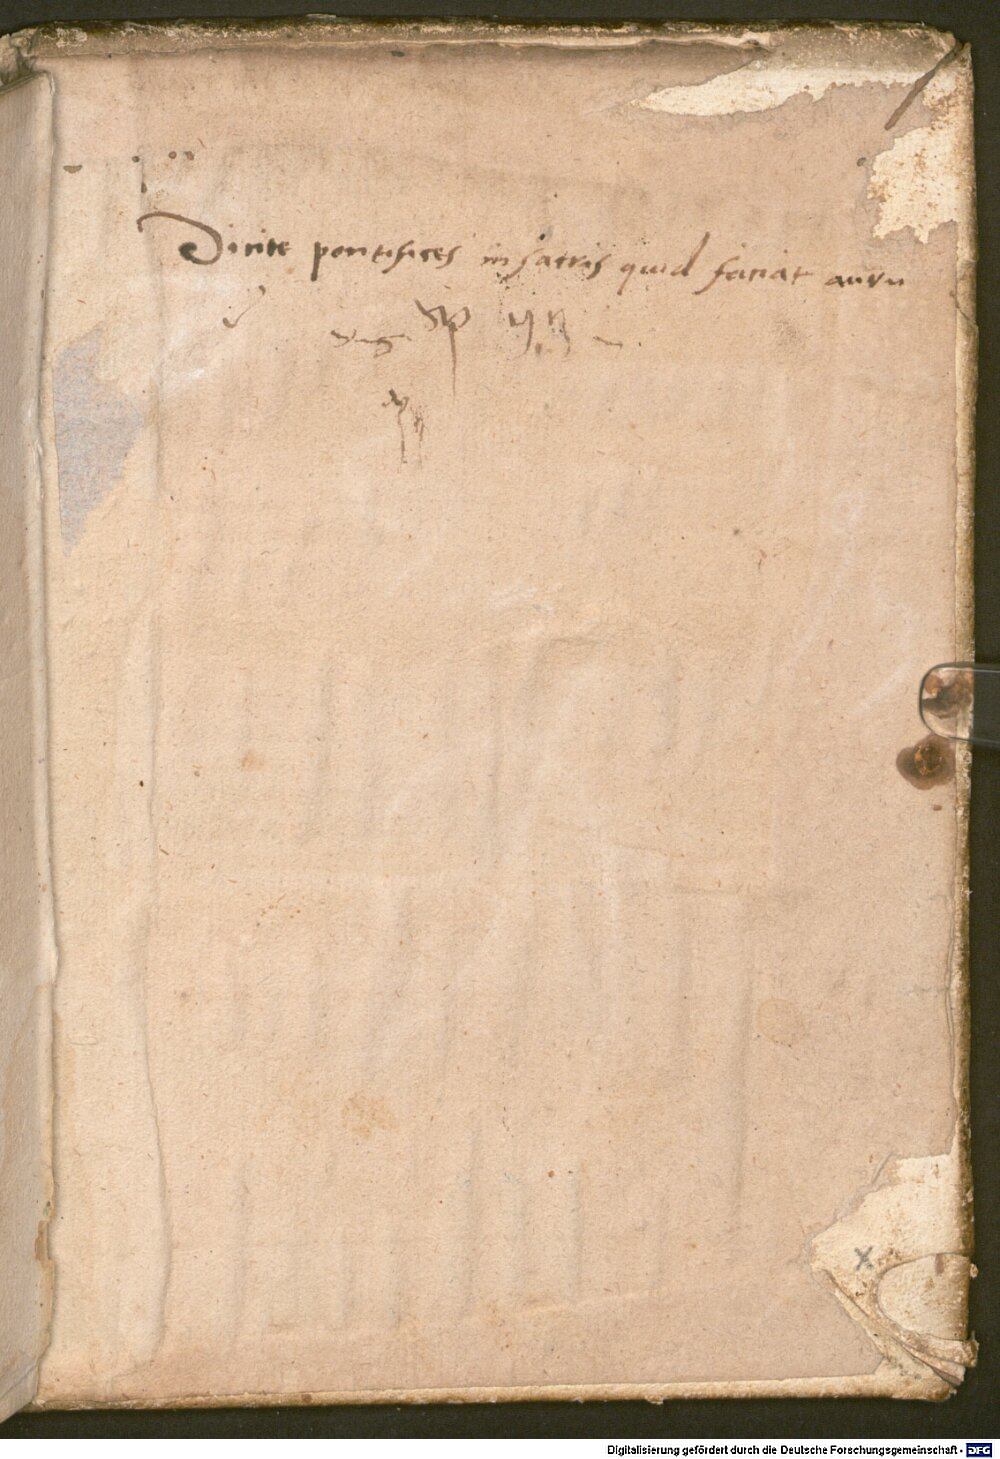 Dicite pontifices in sacris quid faciat auru
x
Digitalisierung gefördert durch die Deutsche Forschungsgemeinschaft - DFG